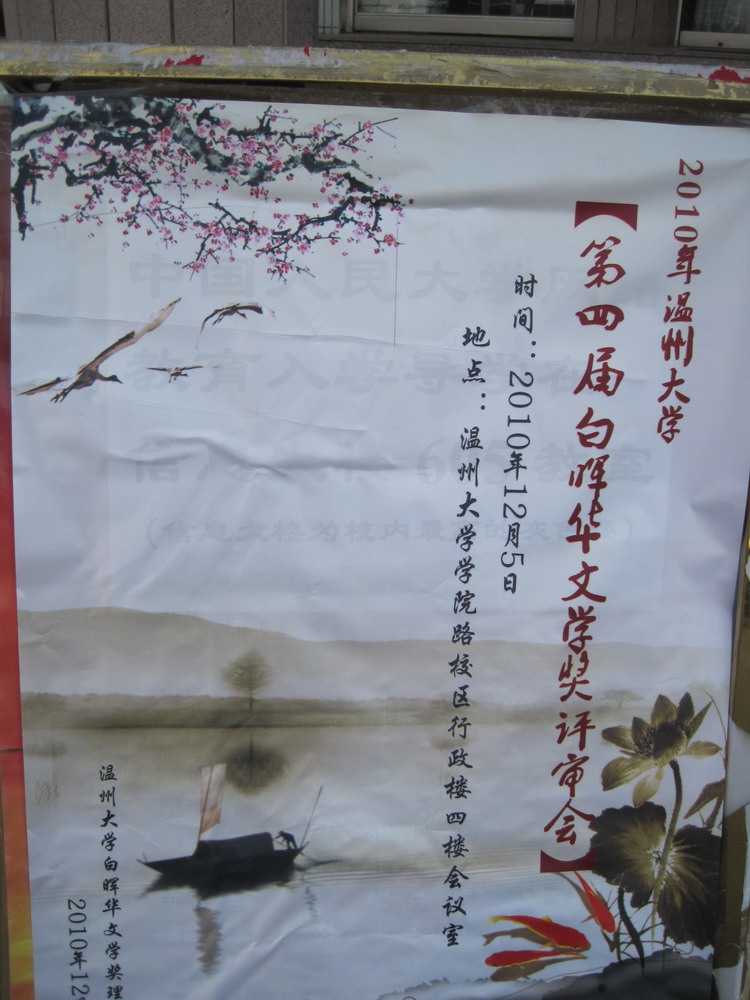 2010年温州大学
【第四届白晖华文学奖评审会】
时间：2010年12月5日
地点：温州大学学院路校区行政楼四楼会议室
温州大学白晖华文学奖理
2010年12
中国人民大学网
教育入学导
教室